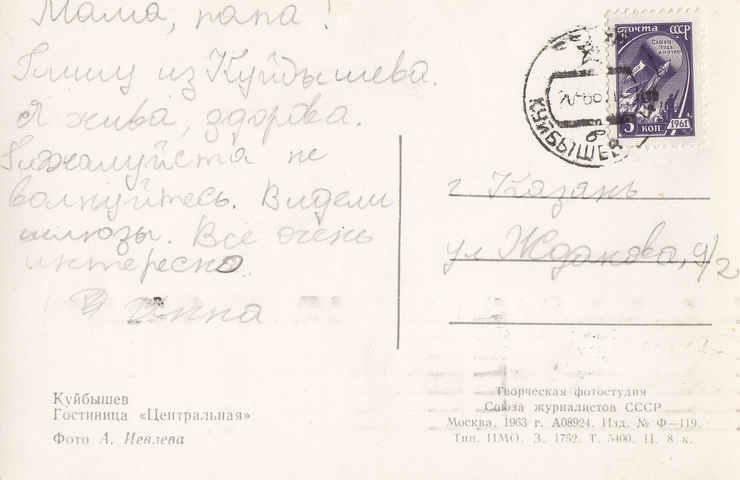 Мама, папа!
Пишу из Куйбышева.
Я жива, здорова.
Пожалуйста не
волнуйтесь. Видели
шлюзы. Всё очень
интересно
Инна
ПОЧТА СССР
5 КОП
1961
КУЙБЫШЕВ
г Казань
ул Жданова, 9/2
Куйбышев
Гостиница «Центральная»
Фото А. Иевлева
Творческая фотостудия
Союза журналистов СССР
Москва, 1963 г. А08924. Изд. № Ф—119.
Тип. ЦМО. З. 1752. Т. 5400. Ц. 8 к.